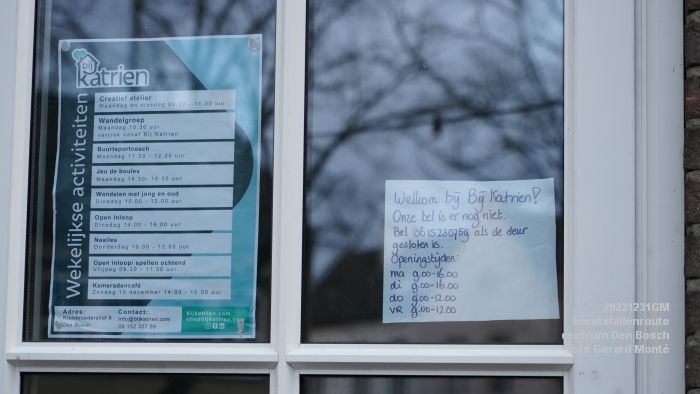 bij
katrien
Wekelijkse activiteiten
Creatief atelier
Maandag en dinsdag 09.30 - 11.30 uur
Wandelgroep
Maandag 10.30 uur
vertrek vanaf Bij Katrien
Buurtsportcoach
Maandag 11.00 - 12.00 uur
Jeu de boules
Maandag 14.30 - 16.30 uur
Wandelen met jong en oud
Dinsdag 10.00 - 12.00 uur
Open Inloop
Dinsdag 14.00 - 16.00 uur
Naailes
Donderdag 10.00 - 12.00 uur
Open inloop/ spellen ochtend
Vrijdag 09.30 - 11.30 uur
Kameradencafé
Zondag 10 december 14.00 - 16.00 uur
Adres:
Kruisbroedershof 8
Den Bosch
Contact:
info@bijkatrien.com
06 152 307 59
bijkatrien.com
shopbijkatrien.com
Welkom bij Bij Katrien!
Onze bel is er nog niet.
Bel 0615230759 als de deur
gesloten is.
Openingstijden:
ma 9.00-16.00
di 9.00-16.00
do 9.00-12.00
VR 9.00-12.00
20231231GM
kerststallenroute
centrum Den Bosch
Gerard Monté